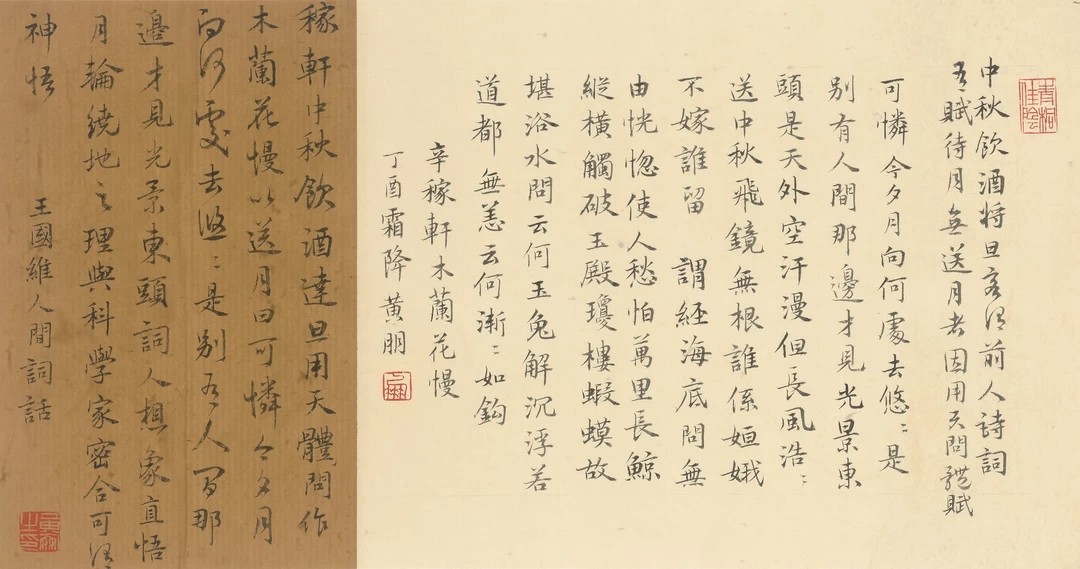 中秋飲酒将旦客謂前人詩詞
有賦待月無送月者因用天問體賦
可憐今夕月向何處去悠〻是
別有人間那邊才見光景東
頭是天外空汗漫但長風浩〻
送中秋飛鏡無根誰係姮娥
不嫁誰留 謂經海底問無
由恍惚使人愁怕萬里長鯨
縱橫觸破玉殿瓊樓蝦蟆故
堪浴水問云何玉兔解沉浮若
道都無恙云何漸〻如鈎
辛稼軒木蘭花慢
丁酉霜降黄朋
稼軒中秋飲酒達旦用天體問作
木蘭花慢以送月曰可憐今夕月
向何處去悠〻是别有人間那
邊才見光景東頭詞人想象直悟
月輪繞地之理與科學家密合可謂
神悟 王國維人間詞話